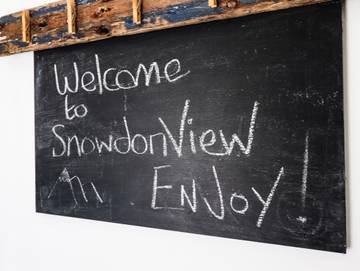 Welcome
to
SnowdonView
ENJoY!